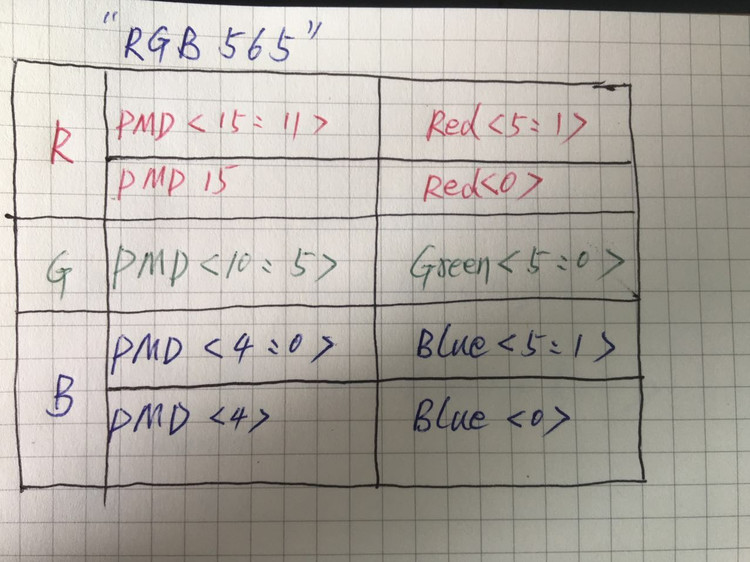 "RGB 565"
R
PMD <15:11> Red<5:1>
PMD 15 Red<0>
G PMD<10:5> Green<5:0>
B
PMD <4:0> Blue<5:1>
PMD <4> Blue <0>